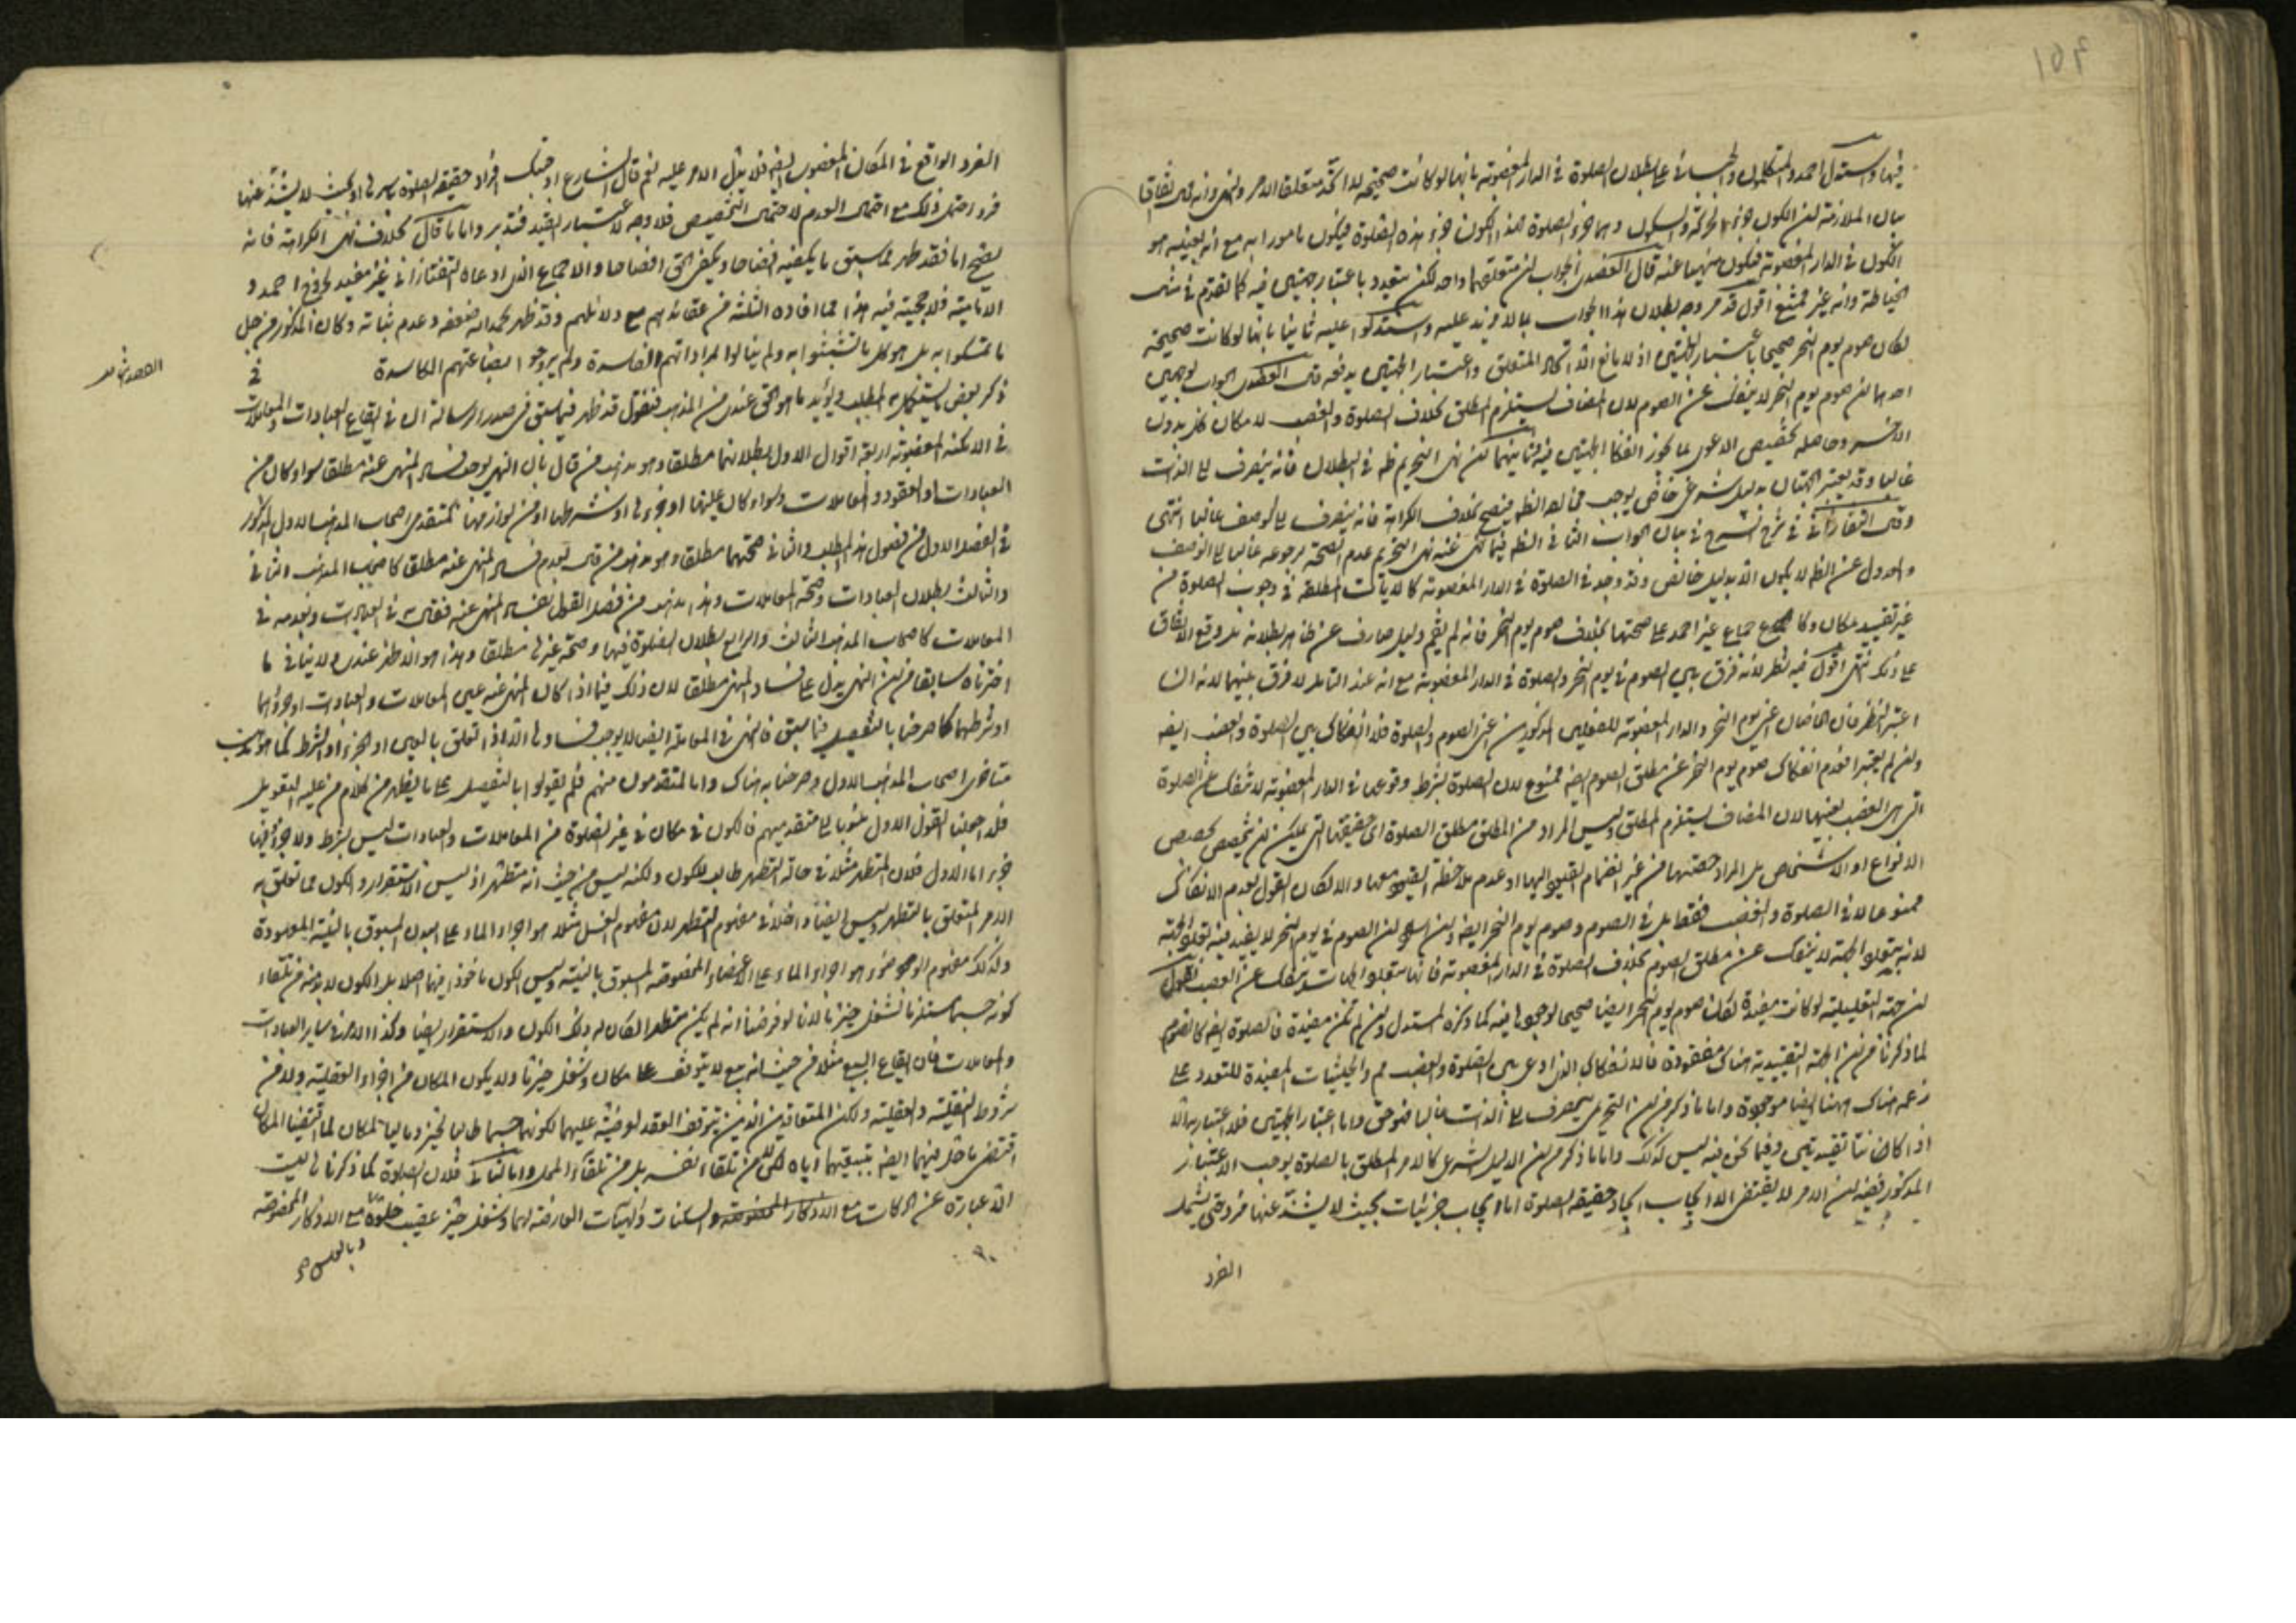 فيها واستدل احمد والمتكلمون والجبائي على بطلان الصلوة في الدار المغصوبة بانها لو كانت صحيحة لاتحد متعلقا الامر والنهى وانه محال اتفاقا
بيان الملازمة ان الكون جزء الحركة والسكون وهما جزء الصلوة فهذا الكون جزء هذه الصلوة فيكون مامورا به مع انه بعينه هو
الكون في الدار المغصوبة فيكون منهيا عنه قال العضدى الجواب ان متعلقهما واحد لكن يتعدد باعتبار جهتين فيه كما تقدم في مثال
الخياطة وانه غير ممتنع اقول قد مر وجه بطلان هذا الجواب بما لا مزيد عليه واستدلوا عليه ثانيا بانها لو كانت صحيحة
لكان صوم يوم النحر صحيحا باعتبار الجهتين اذ لا مانع الا اتحاد المتعلق واعتبار الجهتين يدفعه قال العضدى الجواب بوجهين
احدهما ان صوم يوم النحر لا ينفك عن الصوم لان المضاف يستلزم المطلق بخلاف الصلوة والغصب لامكان كل بدون
الاخر وحاصله تخصيص الدعوى بما يجوز انفكاك الجهتين فيه وثانيهما ان نهى التحريم ظاهر في البطلان فانه ينصرف الى الذات
غالبا وقد يعتبر الجهتان بدليل شرعى خاص يوجب مخالفة الظاهر فيصح بخلاف الكراهة فانه ينصرف الى الوصف غالبا انتهى
وقال التفتازاني في شرح الشرح في بيان الجواب الثاني الظاهر فيما نهى عنه نهى التحريم عدم الصحة لرجوعه غالبا الى الوصف
والعدول عن الظاهر لا يكون الا بدليل خاص وقد وجد في الصلوة في الدار المغصوبة كالايات المطلقة في وجوب الصلوة من
غير تقييد بمكان وكاجماع غير احمد على صحتها بخلاف صوم يوم النحر فانه لم يقم دليل صارف عن ظاهر بطلانه بل وقع الاتفاق
على ذلك انتهى اقول فيه نظر لانه فرق بين الصوم في يوم النحر والصلوة في الدار المغصوبة مع انه عند التامل لا فرق بينهما لانه ان
اعتبر الظرفان الخاصان اعنى يوم النحر والدار المغصوبة للفعلين المذكورين اعنى الصوم والصلوة فلا انفكاك بين الصلوة والغصب ايضا
وان لم يعتبر فعدم انفكاك صوم يوم النحر عن مطلق الصوم ايضا ممنوع لان الصلوة بشرط وقوعها في الدار المغصوبة لا تنفك عن الصلوة
التى هى الغصب بعينها لان المضاف يستلزم المطلق وليس المراد من المطلق مطلق الصلوة اى حقيقتها التى يمكن ان يتخصص بخصيص
الانواع او الاشخاص بل المراد حصتهما من غير انضمام القيود اليها او عدم ملاحظة القيود معها والا لكان القول بعدم الانفكاك
ممنوعا لا في الصلوة والغصب فقط بل في الصوم وصوم يوم النحر ايضا وان اسلم ان الصوم في يوم النحر لا يفيد فيه تعدد الجهة
لانه بتعدد الجهة لا ينفك عن مطلق الصوم بخلاف الصلوة في الدار المغصوبة فانها بتعدد الجهات ينفك عن الغصب نقول
ان جهة التعليلية لو كانت مفيدة لكان صوم يوم النحر ايضا صحيحا لوجودها فيه كما ذكره المستدل وان لم تكن مفيدة فالصلوة ايضا كالصوم
لما ذكرنا من ان الجهة التقييدية هناك مفقودة فالانفكاك الذى ادعى بين الصلوة والغصب مم والحيثيات المفيدة للتعدد على
زعمه هناك وههنا ايضا موجودة واما ما ذكر من ان التحريم ينصرف الى الذات غالبا فهو حق واما اعتبار الجهتين فلا اعتبار به الا
اذا كانتا تقييديتين وفيما نحن فيه ليس كذلك واما ما ذكر من ان الدليل الشرعى كالامر المطلق بالصلوة يوجب الاعتبار
المذكور ففيه ان الامر لا يقتضى الا ايجاب ايجاد حقيقة الصلوة اما ايجاب جزئيات بحيث لا يشذ عنها فرد حتى يشمل
الفرد
الفرد الواقع في المكان المغصوب ايضا فلا يدل الامر عليه نعم لو قال الشارع اوجبت افراد حقيقة الصلوة باسرها او بحيث لا يشذ عنها
فرد احتمل ذلك مع احتمال العدم لاحتمال التخصيص فلا وجه لاعتبار القيد فتدبر واما ما قال بخلاف نهى الكراهة فانه
يصح اما فقد ظهر مما سبق ما يكفيه افتضاحا ويكفى الحق افصاحا والاجماع الذى ادعاه التفتازانى غير مفيد لخروج احمد و
الامامية فلا حجية فيه هذا مما افاده الثلثة من عقائدهم مع دلائلهم وقد ظهر بحمد الله ضعفه وعدم ثباته وكان المذكور من جل
ما تمسكوا به بل هو كل ما تشبثوا به ولم ينالوا لمراداتهم الفاسدة ولم يروجوا ببضاعتهم الكاسدة
في
ذكر بعض ما يستكمل به المطلب ويؤيد ما هو الحق عندى من المذهب فنقول قد ظهر فيما سبق في صدر الرسالة ان في ايقاع العبادات والمعاملات
في الامكنة المغصوبة اربعة اقوال الاول بطلانهما مطلقا وهو مذهب من قال بان النهى يوجب فساد المنهى عنه مطلقا سواء كان من
العبادات او العقود والمعاملات وسواء كان عليها او بجزءها او شرطها او من لوازمها كمتقدمى اصحاب المذهب الاول المذكور
في الفصل الاول من فصول هذا المطلب والثانى صحتهما مطلقا وهو مذهب من قال بعدم فساد المنهى عنه مطلقا كاصحاب المذهب الثانى
والثالث بطلان العبادات وصحة المعاملات وهذا مذهب من فصل القول بفساد المنهى عنه فقال به في العبادات وبعدمه في
المعاملات كاصحاب المذهب الثالث والرابع بطلان الصلوة فيها وصحة غيرها مطلقا وهذا هو الاظهر عندى ولا ينافى ما
اخترناه سابقا من ان النهى يدل على فساد المنهى مطلقا لان ذلك فيما اذا كان المنهى عنه عين المعاملات والعبادات او جزؤهما
او شرطهما كما صرحنا بالتفصيل فيما سبق فالنهى في المعاملة ايضا لا يوجب فسادها الا اذا تعلق بالعين او الجزء او الشرط كما هو مذهب
متاخرى اصحاب المذهب الاول وصرحنا به هناك واما المتقدمون منهم فلم يقولوا بالتفصيل على ما يظهر من كلام من عليه التعويل
فلذا جعلنا القول الاول منسوبا الى متقدميهم فالكون في مكان في غير الصلوة من المعاملات والعبادات ليس بشرط ولا جزء فيها
جزء اما الاول فلان المتطهر مثلا في حالة التطهر طالب للكون ولكنه ليس من حيث انه متطهر اذ ليس الاستقرار والكون مما تعلق به
الامر المتعلق بالتطهر وليس ايضا داخلا في مفهوم التطهر لان مفهوم الغسل مثلا هو اجراء الماء على البدن المسبوق بالنية المعهودة
وكذلك مفهوم الوضوء هو اجراء الماء على الاعضاء المخصوصة المسبوق بالنية وليس الكون ماخوذا فيهما اصلا بل الكون لا بد منه من تلقاء
كونه جسما مستلزما لشغل حيز ما لانا لو فرضنا انه لم يكن متطهرا لكان له ذلك الكون والاستقرار ايضا وكذا الامر في سائر العبادات
والمعاملات فان ايقاع البيع مثلا من حيث انه بيع لا يتوقف على مكان وشغل حيز ما ولا يكون المكان من اجزاءه العقلية ولا من
شروطه النقلية والعقلية ولكن المتعاقدين الذين يتوقف العقد لوقفيته عليهما لكونهما جسما طالبا لحيز وماليا لمكان لما اقتضيا المكان
اقتضى ما حل فيهما ايضا بتبعيتهما اياه لكن من تلقاء نفسه بل من تلقاء المحل واما الثانى فلان الصلوة كما ذكرنا ليست
الا عبارة عن الحركات مع الاذكار المخصوصة والسكنات والهيئات العارضة لهما وشغل حيز عقيب خلوه مع الاذكار المخصوصة
وبالعكس